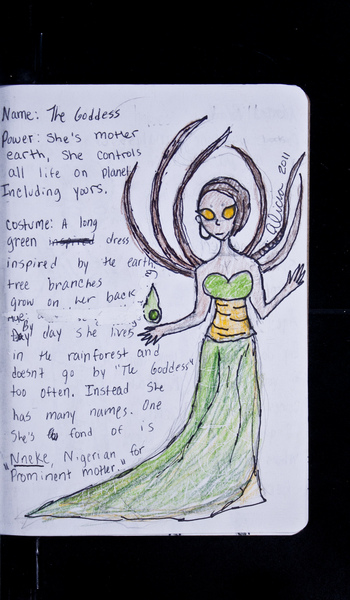 Name: The Goddess
Power: She's mother
earth, She controls
all life on planet
Including yours.
Costume: A long
green inspired dress
inspired by the earth,
tree branches
grow on her back
By day she lives
in the rainforest and
doesn't go by "The Goddess"
too often. Instead She
has many names. One
She's fond of is
"Nneke, Nigerian for
Prominent mother."
Alicia 2011